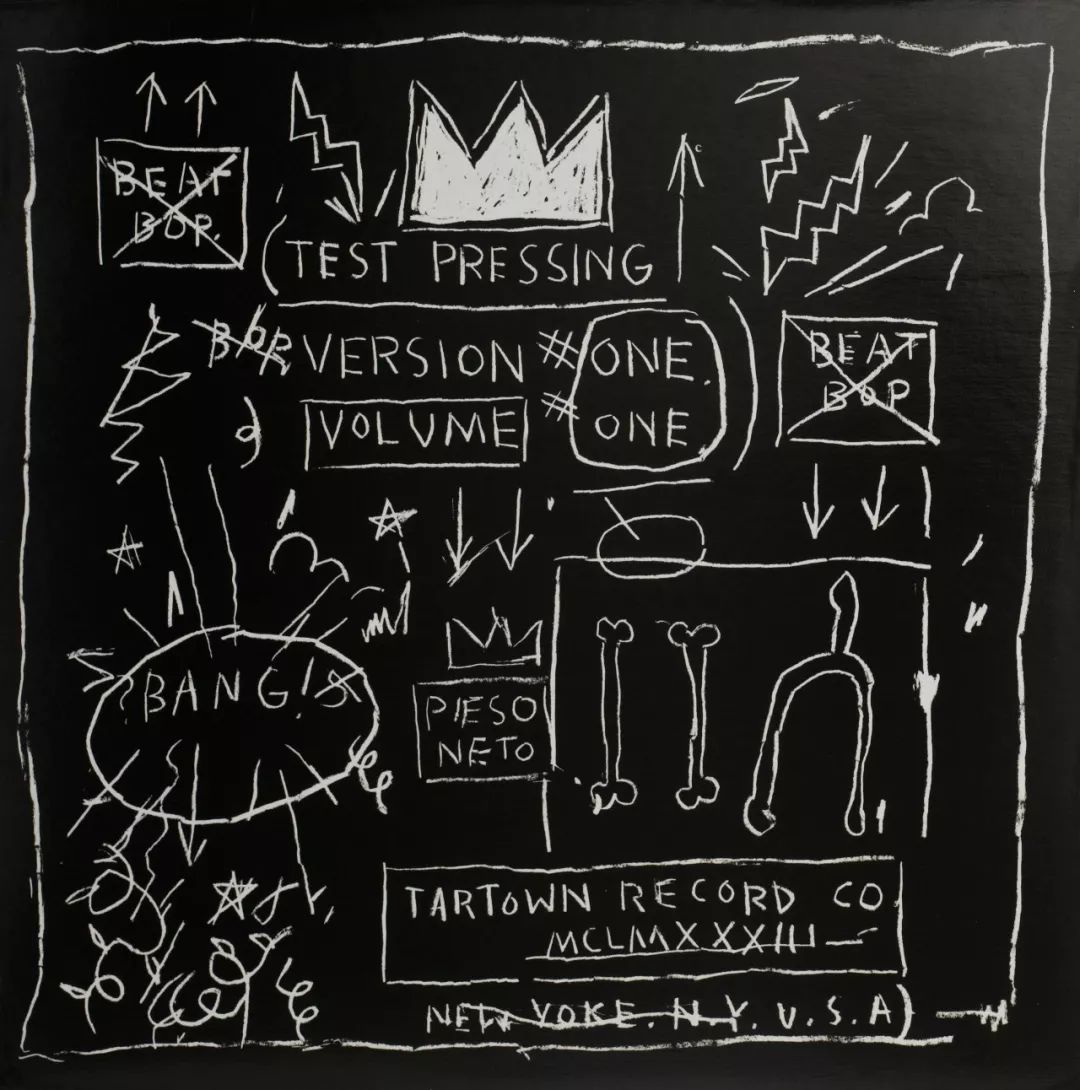 BEAT
BOP.
(TEST PRESSING
BOP VERSION #ONE.
VOLUME # ONE)
BEAT
BOP
BANG!
PIESO
NETO
TARTOWN RECORD CO
MCLMXXXIII
NEW YOKE. N.Y. U.S.A)